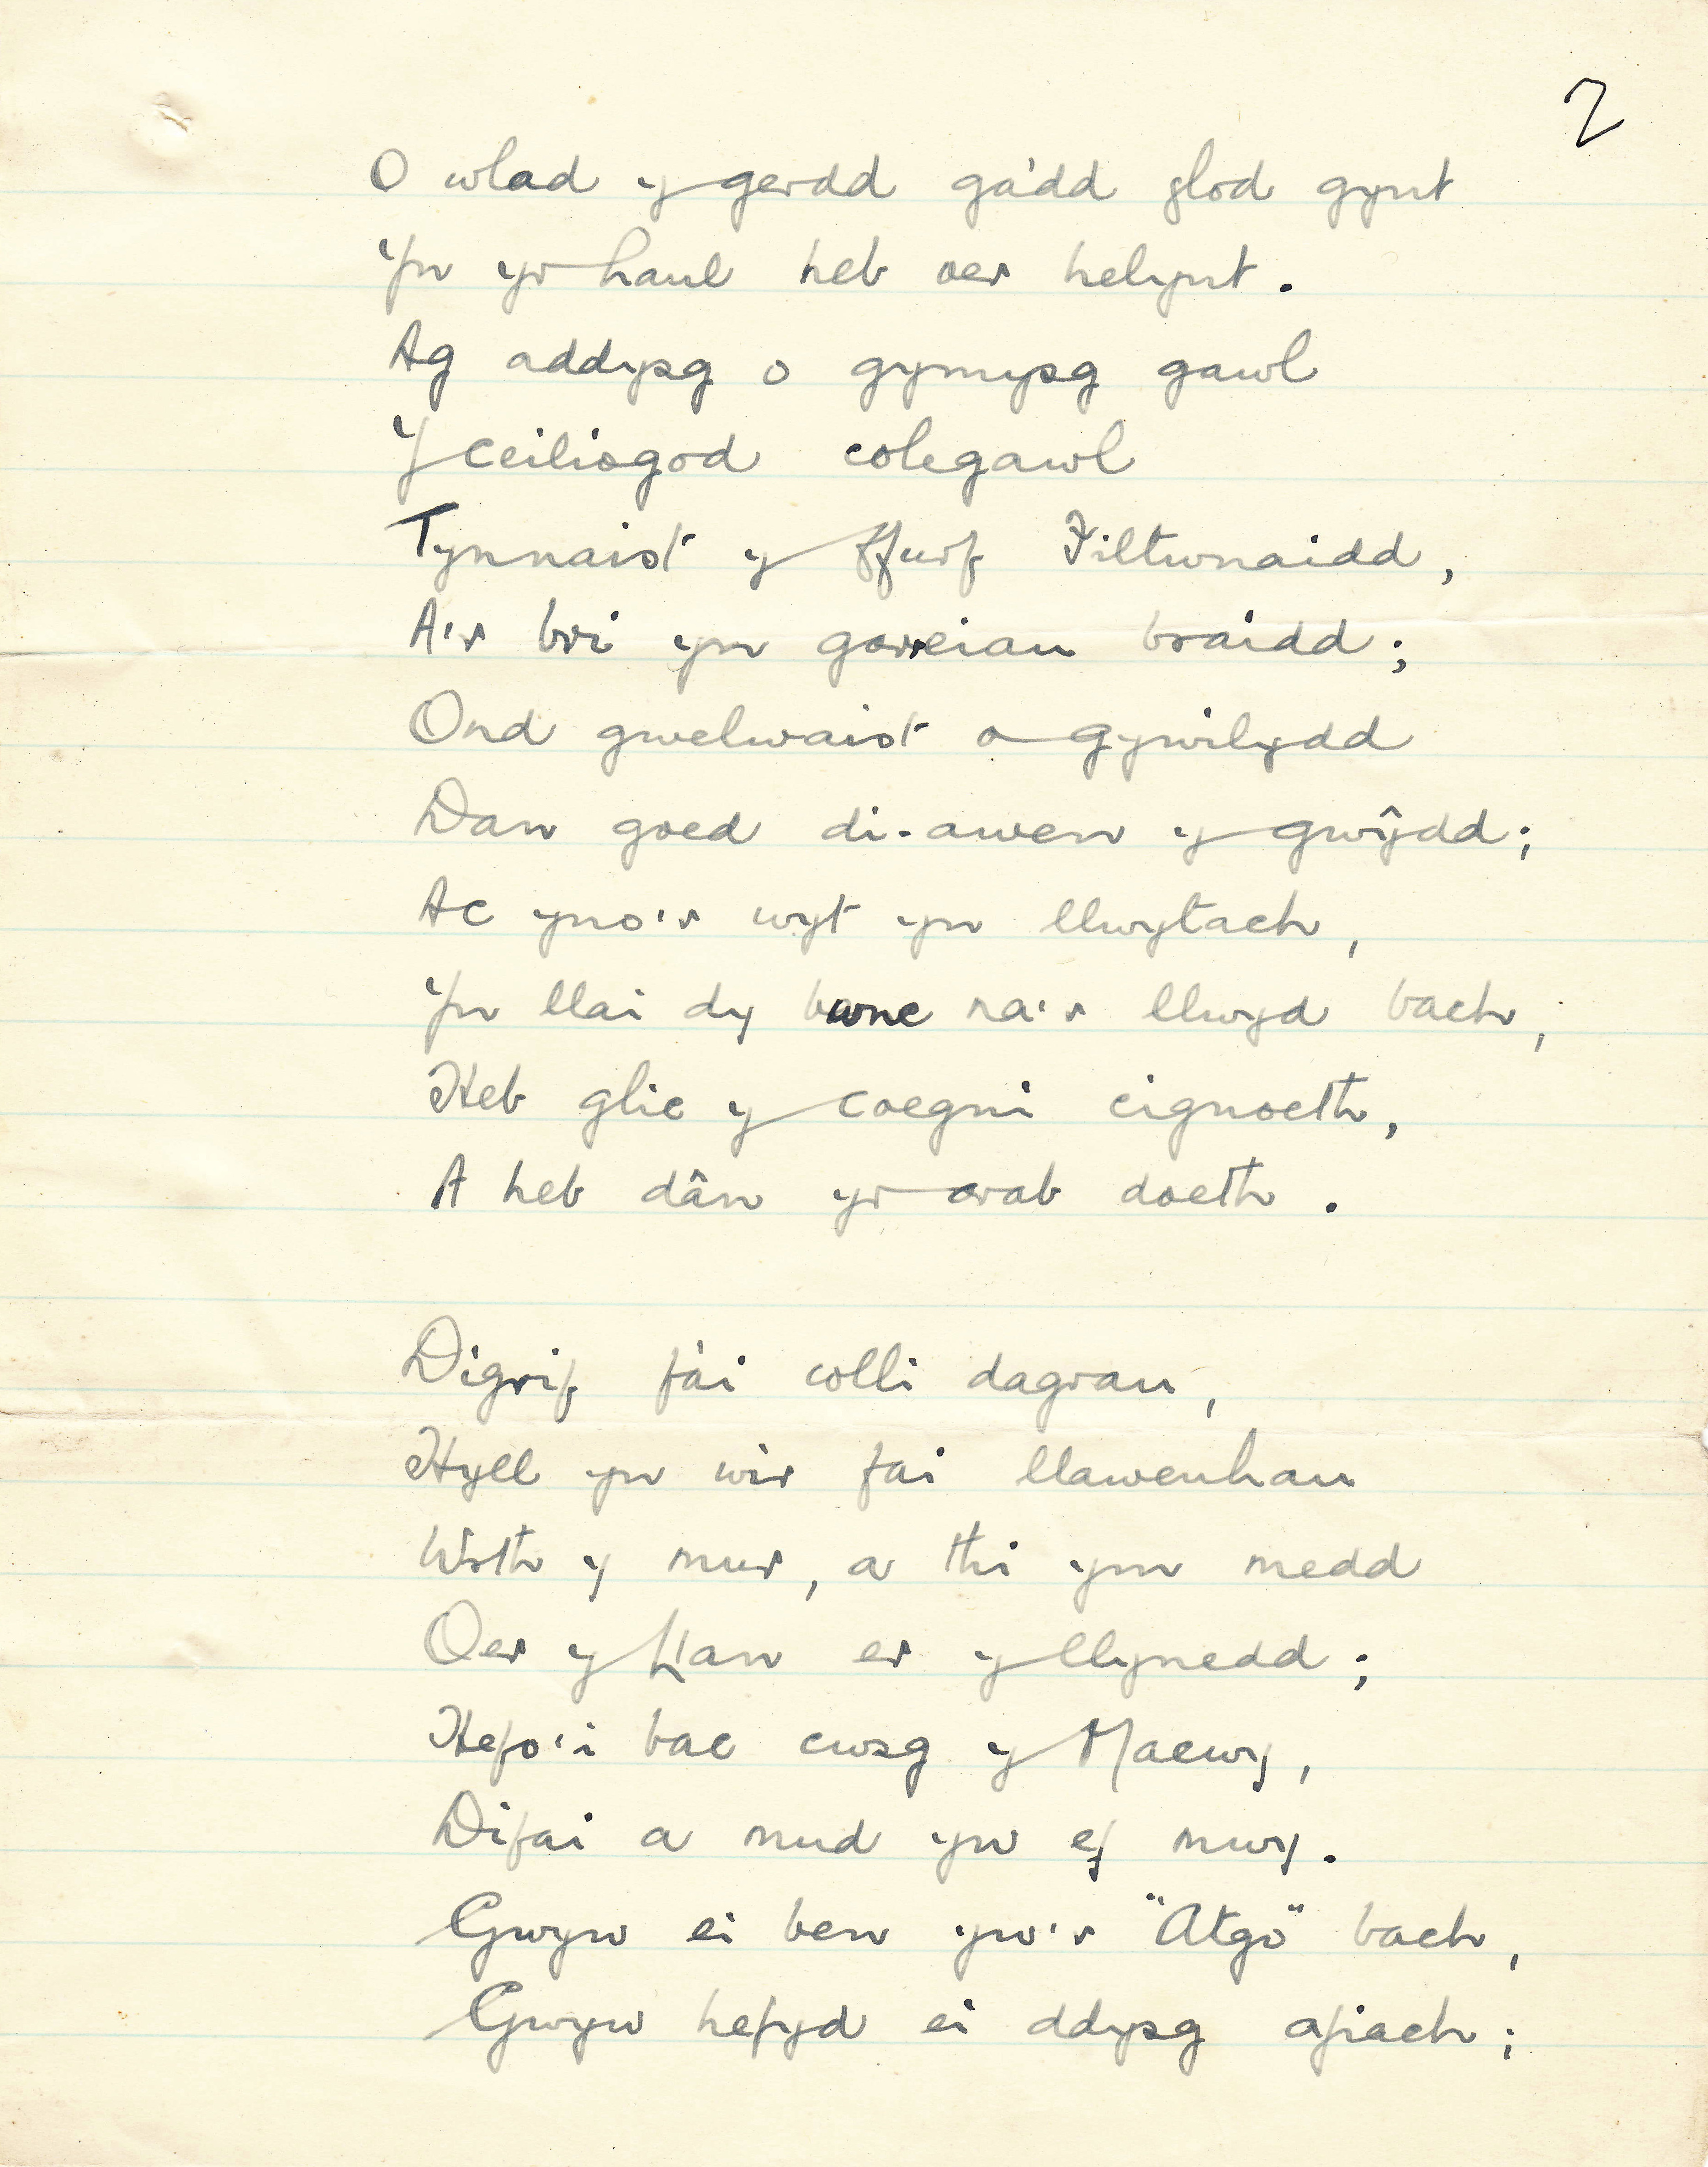 2
O wlad y gerdd ga'dd glod gynt
Yn yr haul heb oer helynt.
Ag addysg o gymysg gawl
Y ceiliogod colegawl
Tynnaist y ffurf Filtwnaidd,
A'r bri yn goreian braidd;
Ond gwelwaist o gywilydd
Dan goed di-awen y gwŷdd;
Ac yno'r wyt yn llwytach,
Yn llai dy bwnc na'r llwyd bach,
Heb glic y coegni eignoeth,
A heb dân yr arab doeth.
Digrif fâi colli dagrau,
Hyll yn wir fai llawenhau
Wrth y mur, a thi ym medd
Oer y Llan er y llynedd;
Hefo'i bac cwsg y Macwy,
Difai a mud yw ef mwy.
Gwyw ei ben yw'r "Atgo" bach,
Gwyw hefyd ei ddysg afiach;